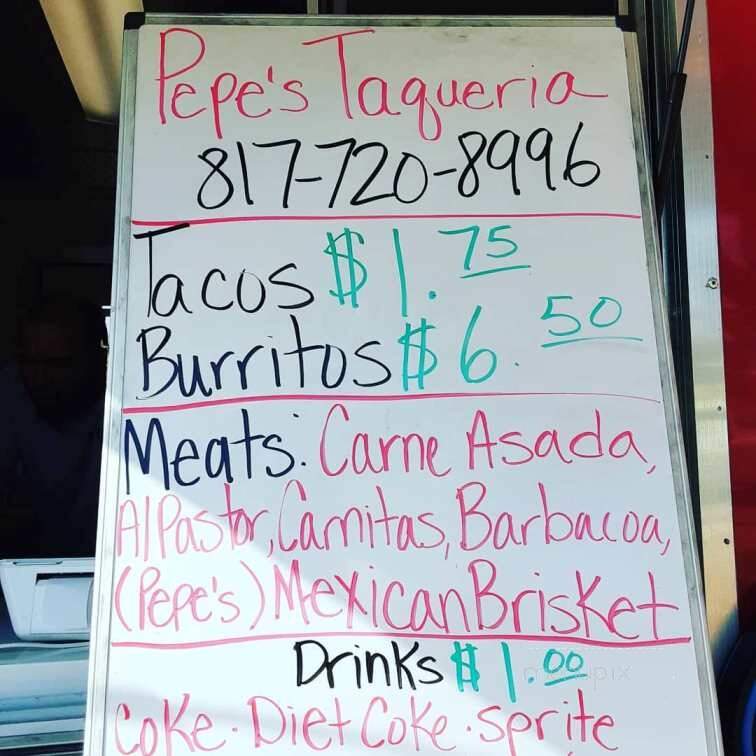 Pepe's Taqueria
817-720-8996
Tacos $1.75
Burritos $6.50
Meats: Carne Asada,
Al Pastor, Carnitas, Barbacoa,
(Pepe's) Mexican Brisket
Drinks $1.00
Coke · Diet Coke · Sprite